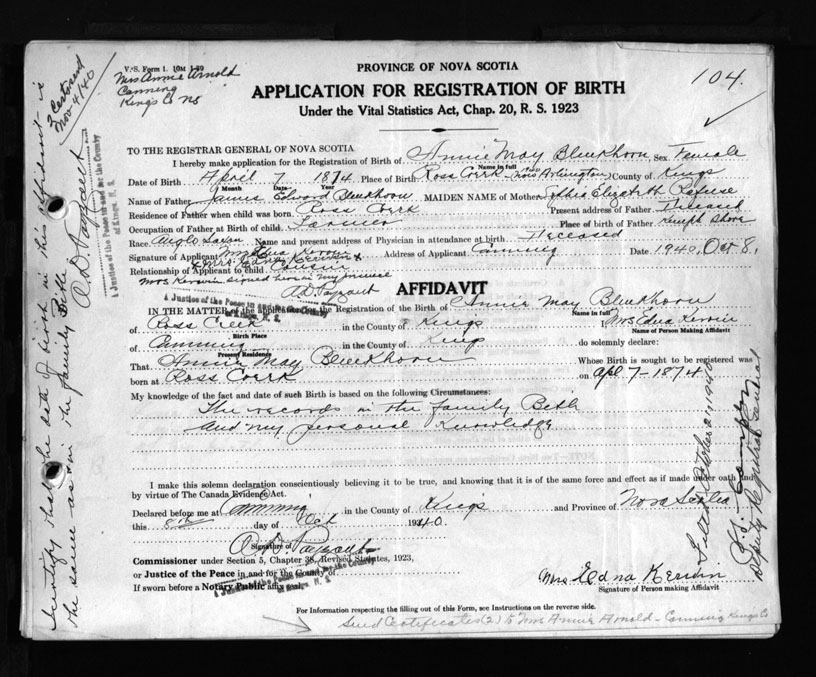 V. S. Form 1. 10M 1-39
PROVINCE OF NOVA SCOTIA
104.
Mrs Annie Arnold
Canning
Kings Co NS
2 Certs sent
Nov 4/40
APPLICATION FOR REGISTRATION OF BIRTH
Under the Vital Statistics Act, Chap. 20, R. S. 1923
TO THE REGISTRAR GENERAL OF NOVA SCOTIA
I hereby make application for the Registration of Birth of Annie May Blenkhorn Sex Female
Name in full
Date of Birth April 7 1874 Place of Birth Ross Creek (Near Arlington) County of Kings
Month Date Year
Name of Father James Edward Blenkhorn MAIDEN NAME of Mother Elizabeth Refuse
Residence of Father when child was born Ross Creek Present address of Father Deceased
Occupation of Father at Birth of child Farmer Place of birth of Father Kempt Shore
Race Anglo Saxon Name and present address of Physician in attendance at birth Deceased
Signature of Applicant Mrs Edna Kerwin Address of Applicant Canning Date 1940 Oct 8
Relationship of Applicant to child
Mrs Kerwin signed here in my presence
A D Payzant
A Justice of the Peace in and for the County
of Kings, N. S.
AFFIDAVIT
IN THE MATTER of the application for the Registration of the Birth of Annie May Blenkhorn
Name in full
of Ross Creek in the County of Kings I Mrs Edna Kerwin
Birth Place Name of Person Making Affidavit
of Canning in the County of Kings do solemnly declare:
Present Residence
That Annie May Blenkhorn Whose Birth is sought to be registered was
born at Ross Creek on Apl 7-1874
My knowledge of the fact and date of such Birth is based on the following Circumstances:
The records in the family Bible
and my personal Knowledge
I make this solemn declaration conscientiously believing it to be true, and knowing that it is of the same force and effect as if made under oath and
by virtue of The Canada Evidence Act.
Declared before me at Canning in the County of Kings and Province of Nova Scotia
this 8th day of Oct 1940.
A. D. Payzant
Signature of
Commissioner under Section 5, Chapter 38, Revised Statutes, 1923,
or Justice of the Peace in and for the County of
If sworn before a Notary Public affix
A Justice of the Peace in and for the County
of Kings, N. S.
Mrs Edna Kerwin
Signature of Person making Affidavit
For Information respecting the filling out of this Form, see Instructions on the reverse side.
Send Certificates (2) to Mrs Annie Arnold - Canning Kings Co
I certify that the date of birth in this affidavit is
the same as in the family Bible
A. D. Payzant
A Justice of the Peace in and for the County
of Kings, N. S.
Filed October 21 1940
Deputy Registrar General